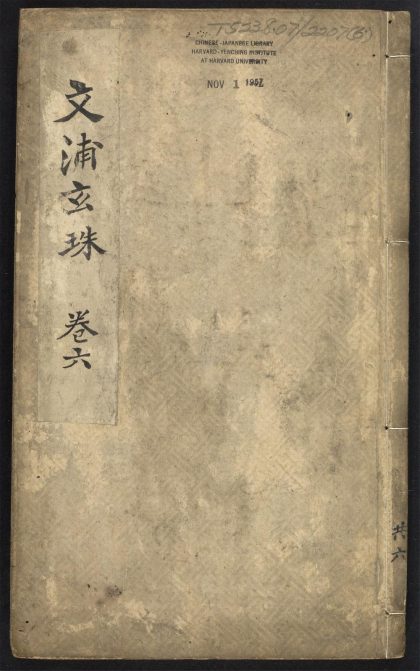 TS238.07/2207(6)
CHINESE-JAPANESE LIBRARY
HARVARD-YENCHING INSTITUTE
AT HARVARD UNIVERSITY
NOV 1 1957
文浦玄珠 卷六
共六